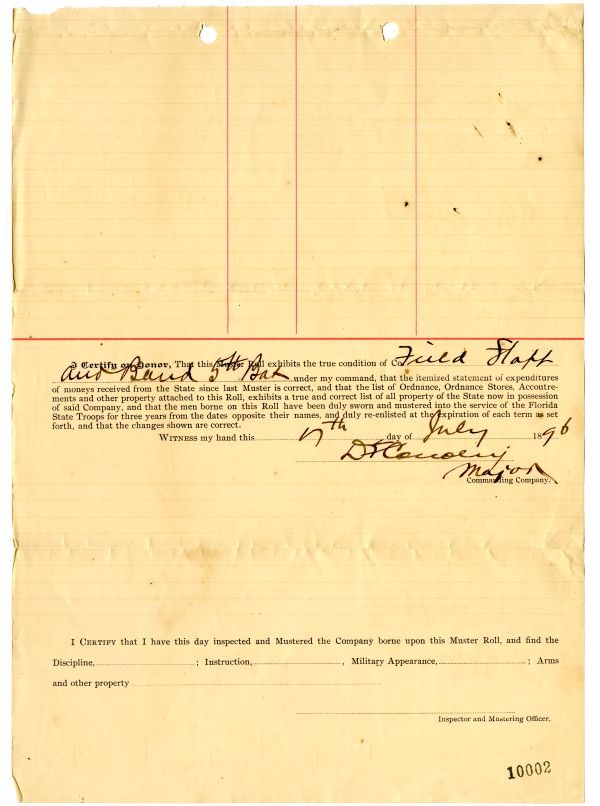 I Certify on Honor, That this Muster Roll exhibits the true condition of Co Field Staff
and Band 5th Bat under my command, that the itemized statement of expenditures
of moneys received from the State since last Muster is correct, and that the list of Ordnance, Ordnance Stores, Accoutre-
ments and other property attached to this Roll, exhibits a true and correct list of all property of the State now in possession
of said Company, and that the men borne on this Roll have been duly sworn and mustered into the service of the Florida
State Troops for three years from the dates opposite their names, and duly re-enlisted at the expiration of each term as set
forth, and that the changes shown are correct.
WITNESS my hand this 17th day of July 1896
Major
Commanding Company.
I CERTIFY that I have this day inspected and Mustered the Company borne upon this Muster Roll, and find the
Discipline, ; Instruction, , Military Appearance, ; Arms
and other property
Inspector and Mustering Officer.
10002